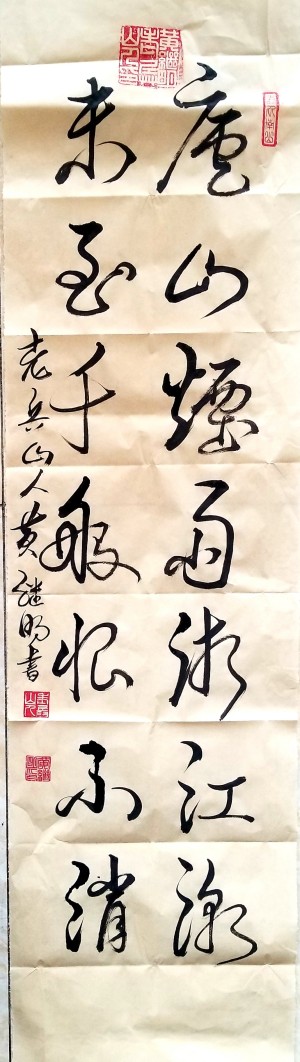 廬山煙雨浙江潮
未至千般恨不消
老兵山人黄继明書